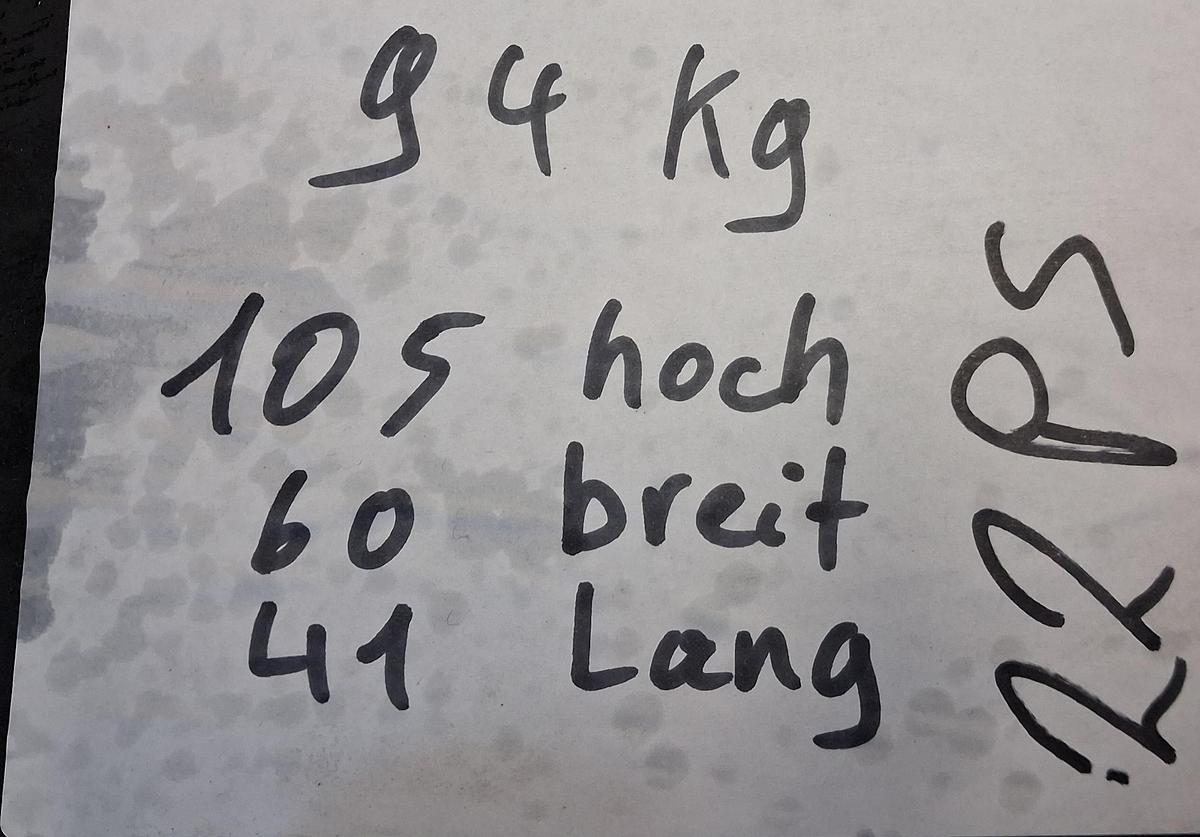 94 kg
105 hoch
60 breit
41 Lang
.22 PS